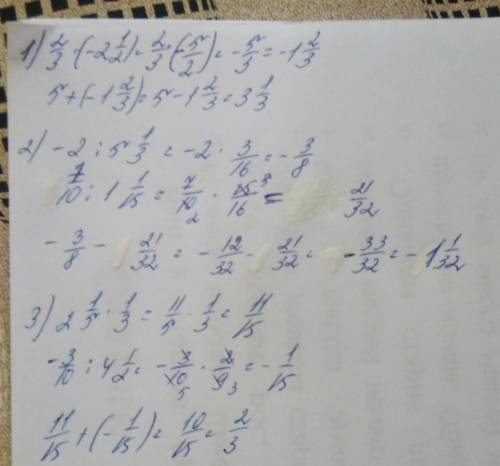 1) 2/3 · (-2 1/2) = 2/3 · (-5/2) = -5/3 = -1 2/3
5 + (-1 2/3) = 5 - 1 2/3 = 3 1/3
2) -2 : 5 1/3 = -2 · 3/16 = -3/8
7/10 : 1 1/15 = 7/10 2 · 15/16 3 = 21/32
-3/8 - 21/32 = -12/32 - 21/32 = -33/32 = -1 1/32
3) 2 1/5 · 1/3 = 11/5 · 1/3 = 11/15
-3/10 : 4 1/2 = -3/10 5 · 2/9 3 = -1/15
11/15 + (-1/15) = 10/15 = 2/3